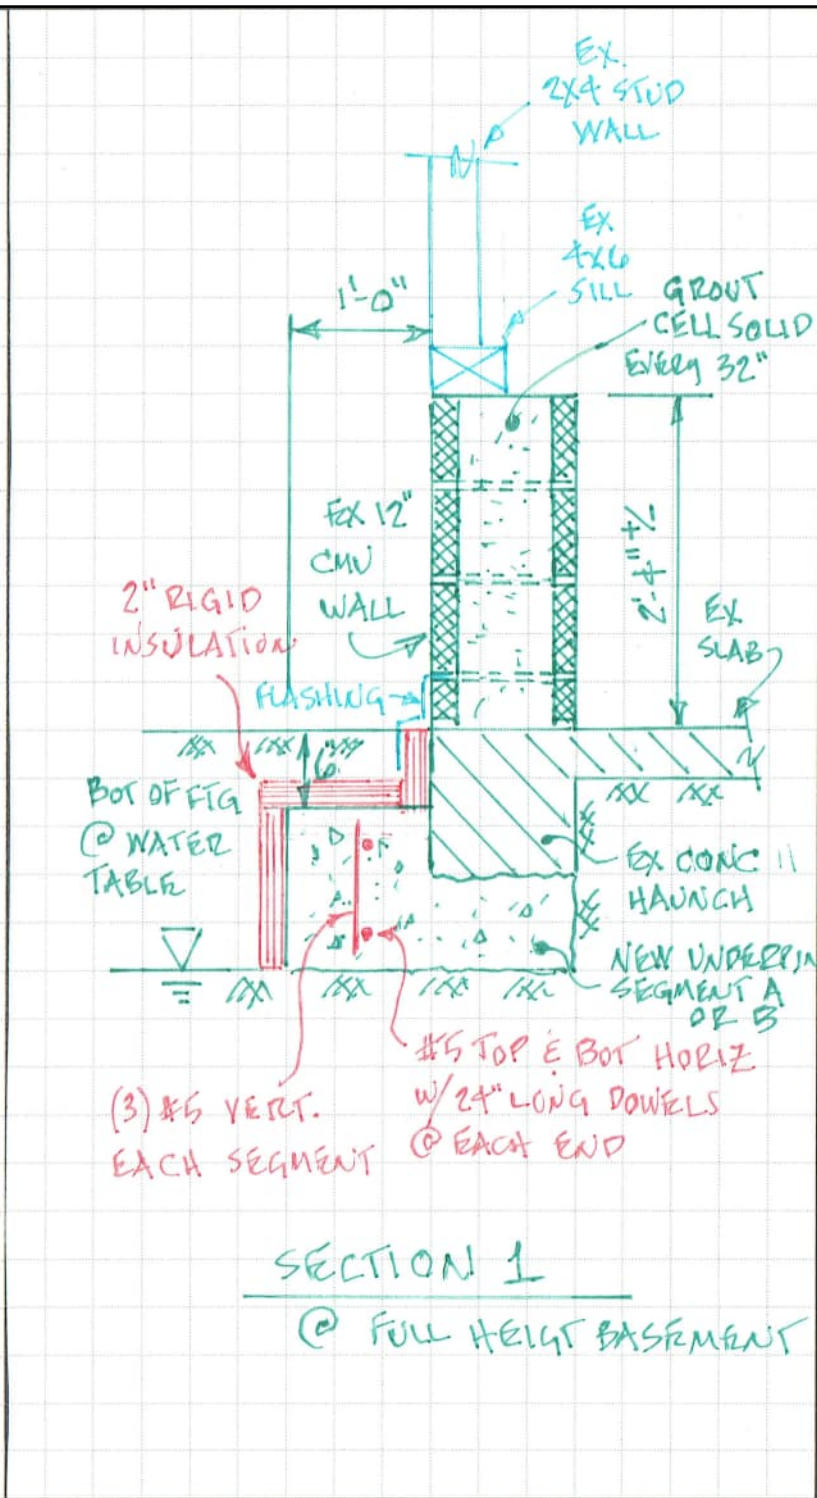 EX.
2X4 STUD
WALL
EX
4X6
SILL
1'-0"
GROUT
CELL SOLID
EVERY 32"
EX 12"
CMU
WALL
2'-4"±
2" RIGID
INSULATION
EX
SLAB
FLASHING
6"
BOT OF FTG
@ WATER
TABLE
EX CONC
HAUNCH
NEW UNDERPIN
SEGMENT A
OR B
#5 TOP & BOT HORIZ
W/ 24" LONG DOWELS
@ EACH END
(3) #5 VERT.
EACH SEGMENT
SECTION 1
@ FULL HEIGT BASEMENT